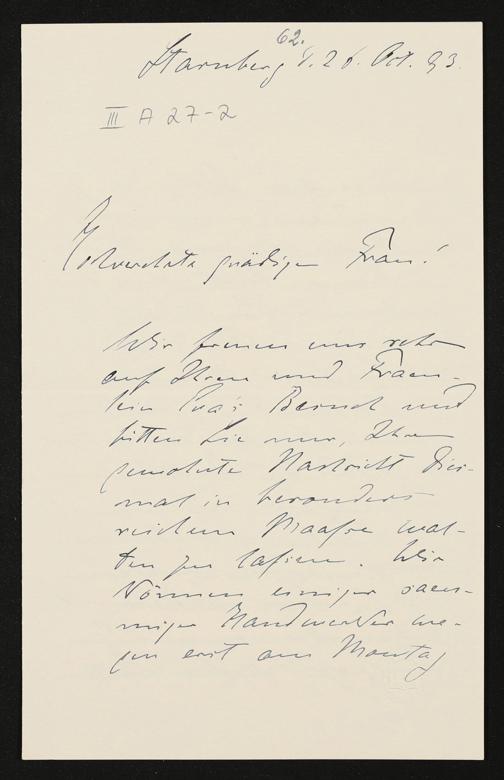 62.
Starnberg d. 26. Oct. 93.
III A 27-2
Hochverehrte gnädige Frau!
Wir freuen uns sehr
auf Ihren und Fraeu-
lein Eva's Besuch und
bitten Sie nur, Ihre
gewohnte Nachsicht dies-
mal in besonders
reichem Maasse wal-
ten zu lassen. Wir
können einiger saeu-
miger Handwerker we-
gen erst am Montag